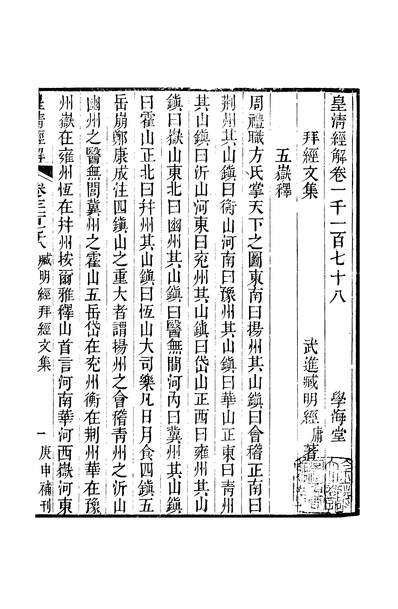 皇清經解卷一千一百七十八
學海堂
拜經文集
武進臧明經庸著
五嶽釋
周禮職方氏掌天下之圖東南曰揚州其山鎮曰會稽正南曰
荆州其山鎮曰衡山河南曰豫州其山鎮曰華山正東曰青州
其山鎮曰沂山河東曰兖州其山鎮曰岱山正西曰雍州其山
鎮曰嶽山東北曰幽州其山鎮曰醫無閭河內曰冀州其山鎮
曰霍山正北曰幷州其山鎮曰恆山大司樂凡日月食四鎮五
岳崩鄭康成注四鎮山之重大者謂揚州之會稽青州之沂山
幽州之醫無閭冀州之霍山五岳岱在兖州衡在荆州華在豫
州嶽在雍州恆在幷州按爾雅釋山首言河南華河西嶽河東
皇清經解
臧明經拜經文集
一
庚申補刊